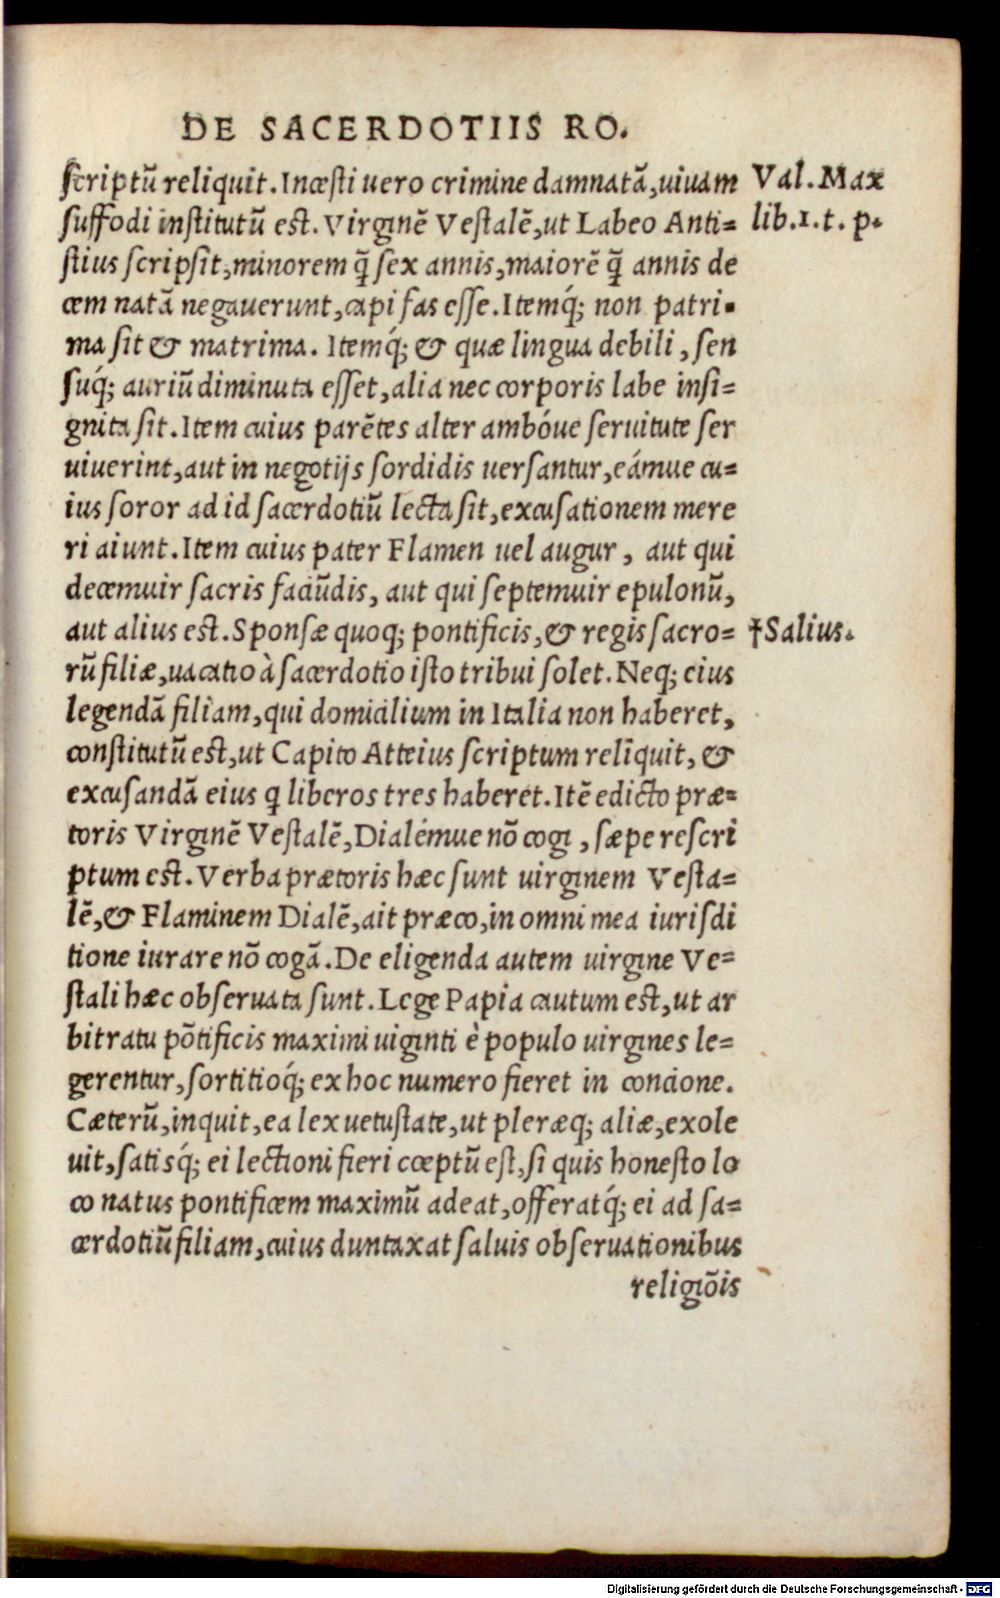 DE SACERDOTIIS RO.
scriptũ reliquit. Incæsti uero crimine damnatã, uiuam
Val. Max
suffodi institutũ est. Virginẽ Vestalẽ, ut Labeo Anti=
lib. 1. t. p.
stius scripsit, minorem q̃ sex annis, maiorẽ q̃ annis de
cem natã negauerunt, capi fas esse. Itemq́; non patri-
ma sit & matrima. Itemq́; & quæ lingua debili, sen
suq́; auriũ diminuta esset, alia nec corporis labe insi=
gnita sit. Item cuius parẽtes alter ambóue seruitute ser
uiuerint, aut in negotijs sordidis uersantur, eámue cu=
ius soror ad id sacerdotiũ lecta sit, excusationem mere
ri aiunt. Item cuius pater Flamen uel augur, aut qui
decemuir sacris faciũdis, aut qui septemuir epulonũ,
aut alius est. Sponsæ quoq; pontificis, & regis sacro=
†Salius.
rũ filiæ, uacatio à sacerdotio isto tribui solet. Neq; eius
legendã filiam, qui domicilium in Italia non haberet,
constitutũ est, ut Capito Atteius scriptum reliquit, &
excusandã eius q liberos tres haberet. Itẽ edicto præ=
toris Virginẽ Vestalẽ, Dialémue nõ cogi, sæpe rescri
ptum est. Verba prætoris hæc sunt uirginem Vesta=
lẽ, & Flaminem Dialẽ, ait præco, in omni mea iurisdi
tione iurare nõ cogã. De eligenda autem uirgine Ve=
stali hæc obseruata sunt. Lege Papia cautum est, ut ar
bitratu põtificis maximi uiginti è populo uirgines le=
gerentur, sortitioq́; ex hoc numero fieret in concione.
Cæterũ, inquit, ea lex uetustate, ut pleræq; aliæ, exole
uit, satisq́; ei lectioni fieri cœptũ est, si quis honesto lo
co natus pontificem maximũ adeat, offeratq́; ei ad sa=
cerdotiũ filiam, cuius duntaxat saluis obseruationibus
religiõis
Digitalisierung gefördert durch die Deutsche Forschungsgemeinschaft - DFG